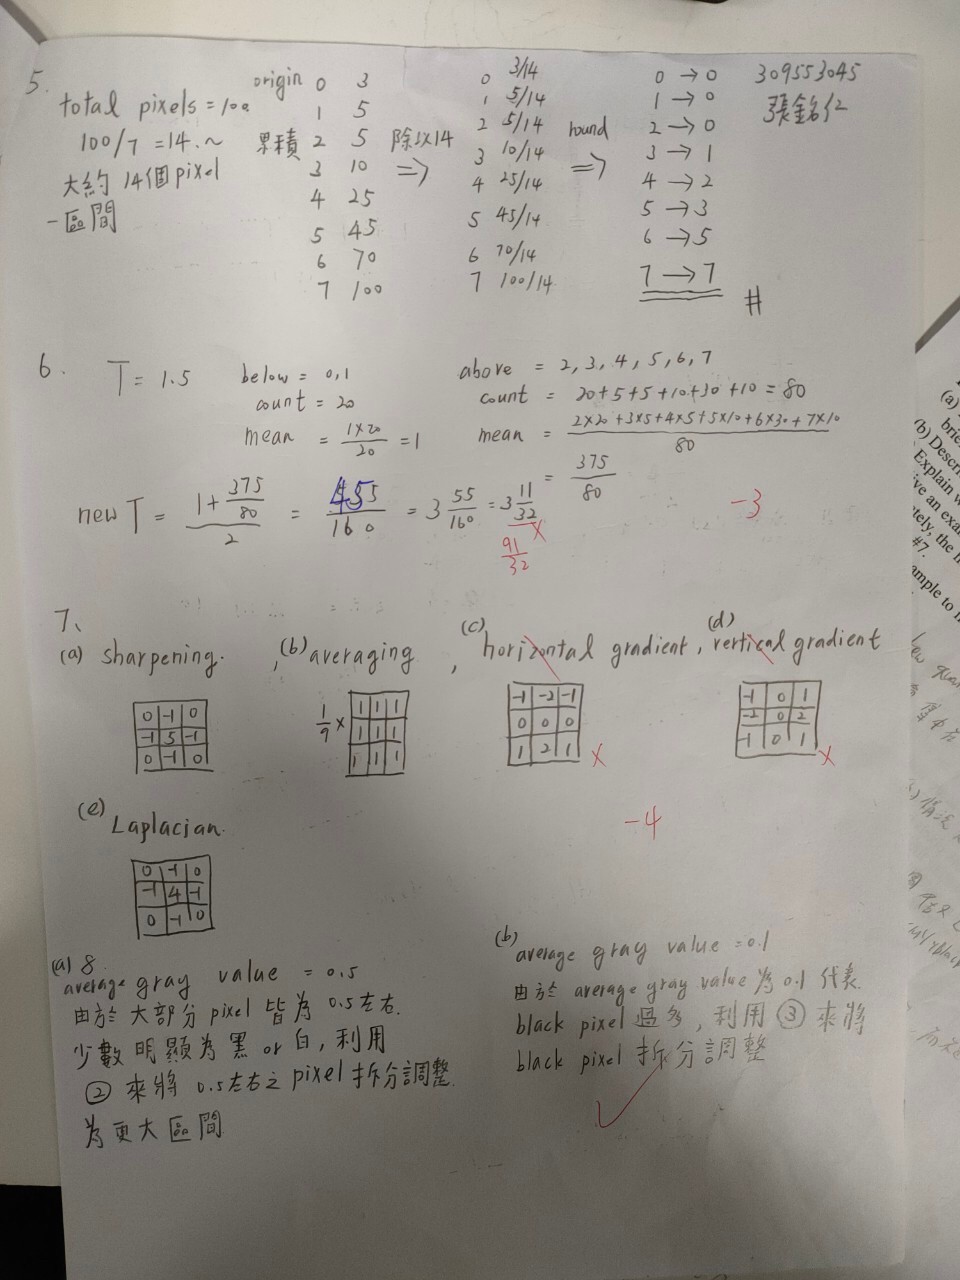 5.
total pixels = 100
100/7 = 14.~
大約 14個pixel
一區間
origin 0 3
1 5
累積 2 5
3 10
4 25
5 45
6 70
7 100
除以14
⇒
0 3/14
1 5/14
2 5/14
3 10/14
4 25/14
5 45/14
6 70/14
7 100/14
round
⇒
0 → 0
1 → 0
2 → 0
3 → 1
4 → 2
5 → 3
6 → 5
7 → 7
#
309553045
張銘仁
6.
T = 1.5
below = 0,1
count = 20
mean = 1×20/20 = 1
above = 2, 3, 4, 5, 6, 7
count = 20+5+5+10+30+10 = 80
mean = 2×20+3×5+4×5+5×10+6×30+7×10/80
= 375/80
new T = 1+375/80/2 = 455/160 = 3 55/160 = 3 11/32 ×
91/32
-3
7、
(a) sharpening. , (b) averaging , (c) horizontal gradient, (d) vertical gradient
0 -1 0
-1 5 -1
0 -1 0
1/9 ×
1 1 1
1 1 1
1 1 1
-1 -2 -1
0 0 0
1 2 1
×
-1 0 1
-2 0 2
-1 0 1
×
-4
(e) Laplacian.
0 -1 0
-1 4 -1
0 -1 0
(a) 8
average gray value = 0.5
由於 大部分 pixel 皆為 0.5左右.
少數 明顯為 黑 or 白, 利用
② 來將 0.5左右之 pixel 拆分調整.
為更大區間
(b)
average gray value = 0.1
由於 average gray value 為 0.1 代表.
black pixel 過多, 利用 ③ 來將
black pixel 拆分調整
(a)
brie
(b) Descri
Explain w
ive an exa
tely, the
#7.
ample to